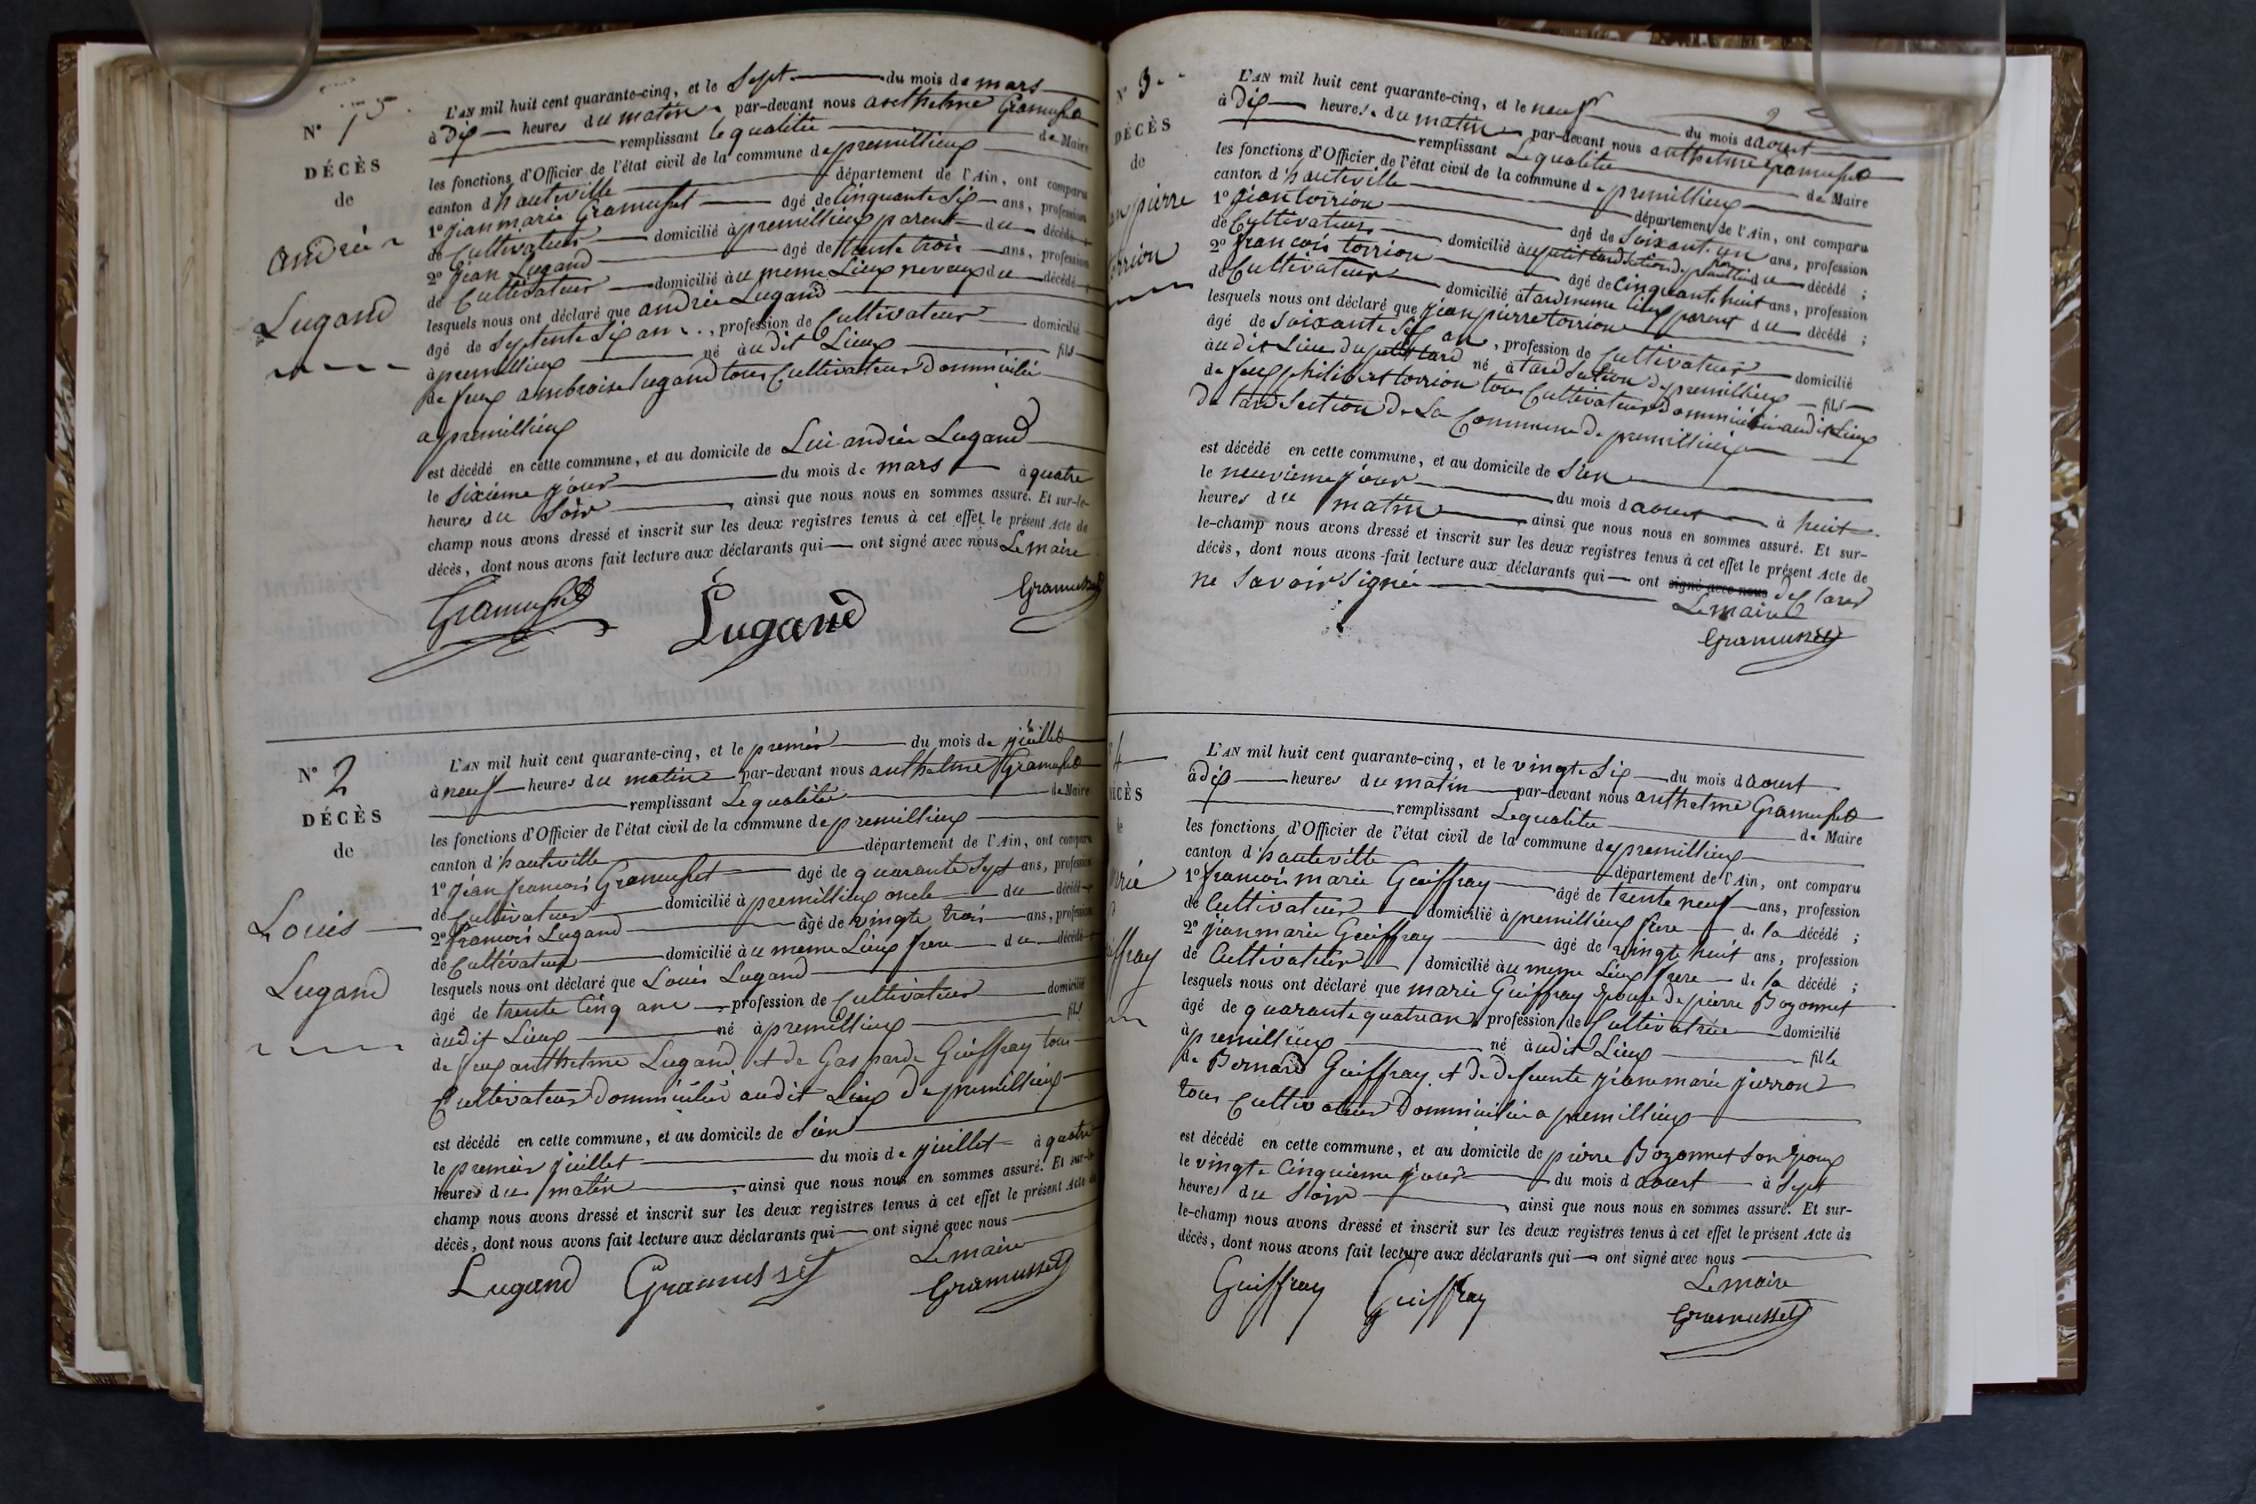 N° 1
DÉCÈS
de
andrée
Lugand
L'AN mil huit cent quarante-cinq, et le Sept du mois de mars
à Dix heures du matin par-devant nous anthelme Gramusset
remplissant le qualitée de Maire
les fonctions d'Officier de l'état civil de la commune de premillieux
canton d'hauteville département de l'Ain, ont comparu
1° jean marie Gramusset âgé de Cinquante Six ans, profession
de Cultivateur domicilié à premillieux parent du décédé ;
2° jean Lugand âgé de trente trois ans, profession
de Cultivateur domicilié au meme Lieux neveux du décédé ;
lesquels nous ont déclaré que andrée Lugand
âgé de Septente Six ans, profession de Cultivateur domicilié
à premillieux né audit Lieux fils
de feux ambroise Lugand tous Cultivateur Dommicilié
a premillieux
est décédé en cette commune, et au domicile de Lui andrée Lugand
le Sixieme jour du mois de mars à quatre
heures du Soir, ainsi que nous nous en sommes assuré. Et sur-le-
champ nous avons dressé et inscrit sur les deux registres tenus à cet effet le présent Acte de
décès, dont nous avons fait lecture aux déclarants qui ont signé avec nous Le maire
Gramusset Lugand Gramusset
N° 2
DÉCÈS
de
Louis
Lugand
L'AN mil huit cent quarante-cinq, et le premier du mois de juillet
à neuf heures du matin par-devant nous anthelme Gramusset
remplissant Le qualitée de Maire
les fonctions d'Officier de l'état civil de la commune de premillieux
canton d'hauteville département de l'Ain, ont comparu
1° jean francois Gramusset âgé de quarante Sept ans, profession
de Cultivateur domicilié à premillieux oncle du décédé
2° francois Lugand âgé de vingte trois ans, profession
de Cultivateur domicilié au meme Lieux frere du décédé
lesquels nous ont déclaré que Louis Lugand
âgé de trente Cinq ans profession de Cultivateur domicilié
audit Lieux né à premillieux fils
de feux anthelme Lugand et de Gasparde Guiffray tous
Cultivateur Dommicilié audit Lieux de premillieux
est décédé en cette commune, et au domicile de Sien
le premier juillet du mois de juillet à quatre
heures du matin, ainsi que nous nous en sommes assuré. Et sur-le-
champ nous avons dressé et inscrit sur les deux registres tenus à cet effet le présent Acte de
décès, dont nous avons fait lecture aux déclarants qui ont signé avec nous
Le maire
Lugand Gramusset Gramusset
N° 3
DÉCÈS
de
pierre
torrion
L'AN mil huit cent quarante-cinq, et le neuf du mois d'aoust
à Dix heures du matin par-devant nous anthelme Gramusset
remplissant Le qualitée de Maire
les fonctions d'Officier de l'état civil de la commune de premillieux
canton d'hauteville département de l'Ain, ont comparu
1° jean torrion âgé de Soixant un ans, profession
de Cultivateur domicilié au petit tard Section de premillieux du décédé ;
2° francois torrion âgé de Cinquante huit ans, profession
de Cultivateur domicilié a tard meme lieux parent du décédé ;
lesquels nous ont déclaré que jean pierre torrion
âgé de Soixante Six ans, profession de Cultivateur domicilié
audit Lieu du petit tard né à tard Section de premillieux fils
de feux philibert torrion tous Cultivateur Dommicilié audit Lieux
De tard Section De La Commune De premillieux
est décédé en cette commune, et au domicile de Sien
le neuvieme jour du mois d'aoust à huit
heures du matin ainsi que nous nous en sommes assuré. Et sur-
le-champ nous avons dressé et inscrit sur les deux registres tenus à cet effet le présent Acte de
décès, dont nous avons fait lecture aux déclarants qui ont signé avec nous declarer
ne Savoir Signée
Le maire
Gramusset
4
DÉCÈS
de
Guiffray
L'AN mil huit cent quarante-cinq, et le vingte Six du mois d'aoust
à dix heures du matin par-devant nous anthelme Gramusset
remplissant Le qualitée de Maire
les fonctions d'Officier de l'état civil de la commune de premillieux
canton d'hauteville département de l'Ain, ont comparu
1° francois marie Guiffray âgé de trente neuf ans, profession
de Cultivateur domicilié à premillieux frere de la décédé ;
2° jean marie Guiffray âgé de vingte huit ans, profession
de Cultivateur domicilié au meme Lieux frere de la décédé ;
lesquels nous ont déclaré que marie Guiffray Epouse de pierre Bozonnet
âgé de quarante quatre ans profession de Cultivatrice domicilié
à premillieux né audit Lieux fille
de Bernard Guiffray et De defeunte jeanne marie jurron
tous Cultivateur Dommicilié a premillieux
est décédé en cette commune, et au domicile de pierre Bozonnet Son Epoux
le vingte Cinquieme jour du mois d'aoust à Sept
heures du Soir, ainsi que nous nous en sommes assuré. Et sur-
le-champ nous avons dressé et inscrit sur les deux registres tenus à cet effet le présent Acte de
décès, dont nous avons fait lecture aux déclarants qui ont signé avec nous
Le maire
Guiffray Guiffray Gramusset